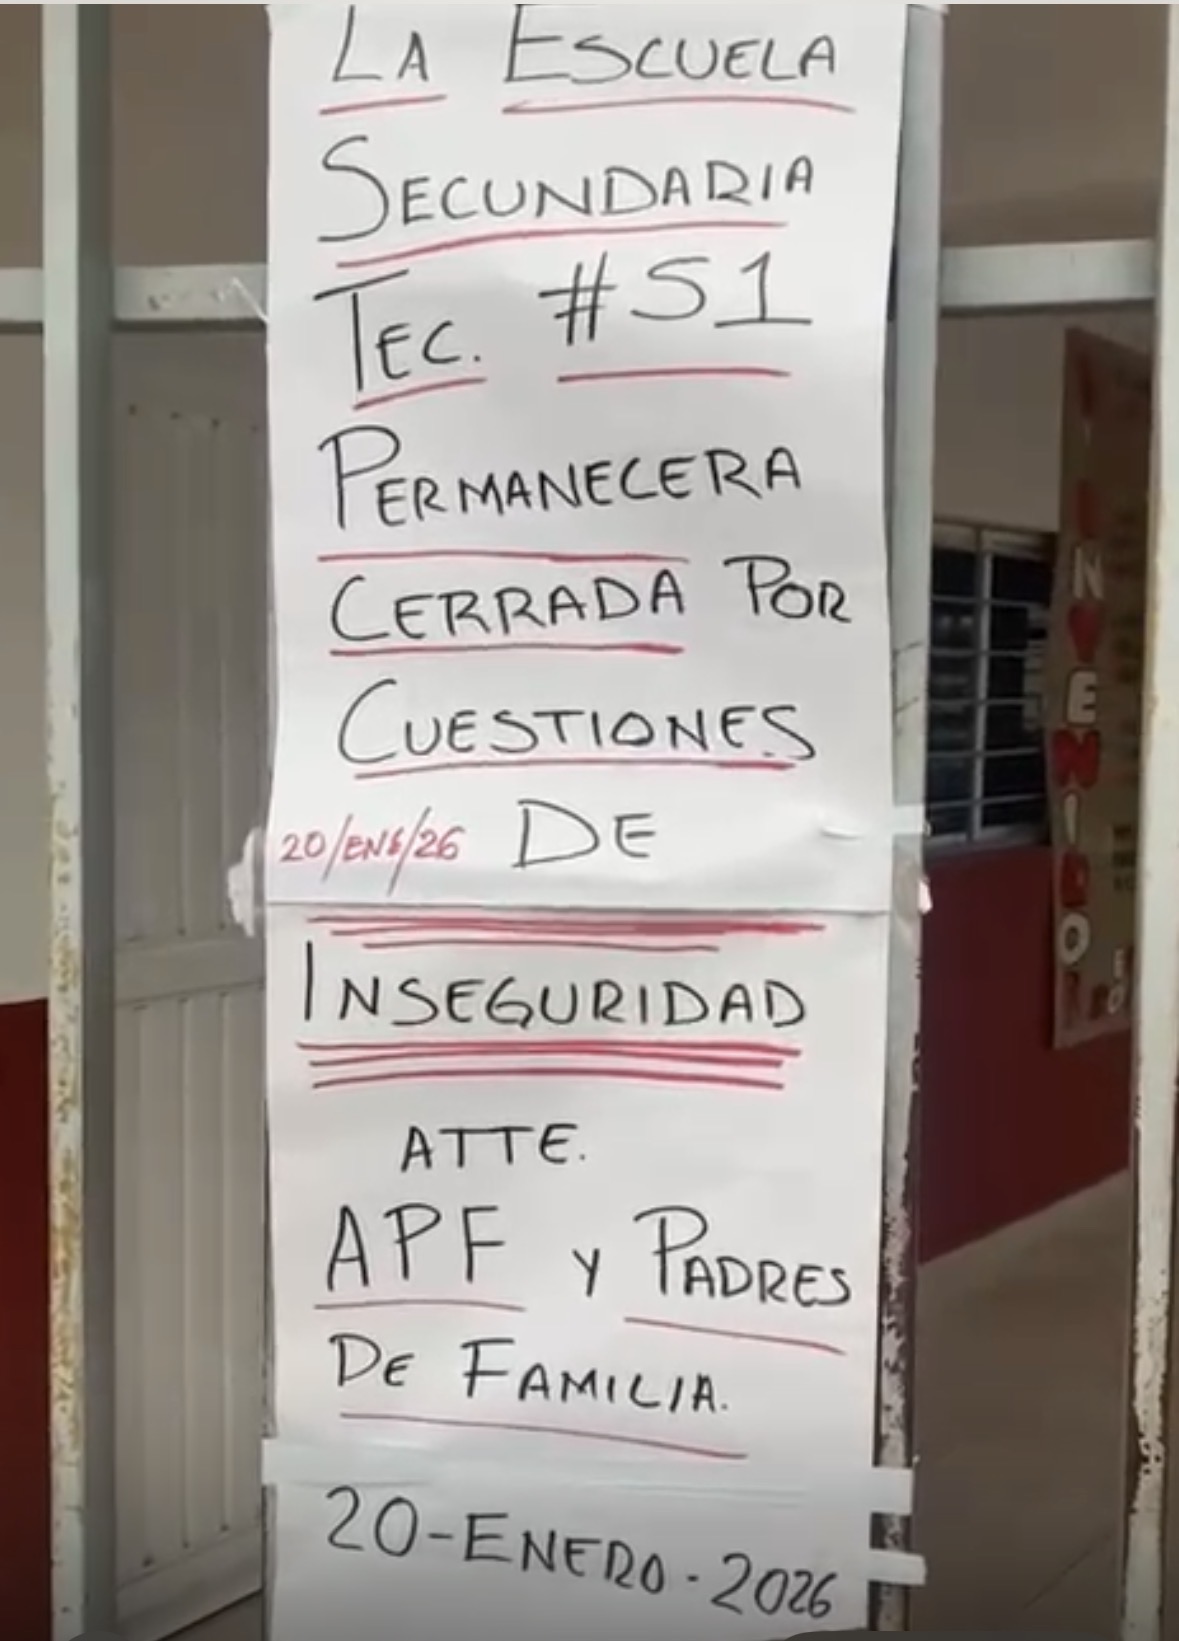 LA ESCUELA
SECUNDARIA
TEC. #51
PERMANECERA
CERRADA POR
CUESTIONES
20/ENE/26 DE
INSEGURIDAD
ATTE.
APF Y PADRES
DE FAMILIA.
20-ENERO-2026